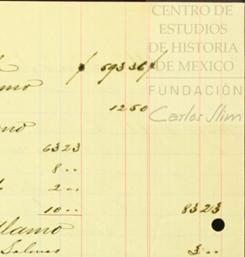 CENTRO DE
ESTUDIOS
DE HISTORIA
DE MEXICO
FUNDACIÓN
Carlos Slim
59336
1250
6323
8 ..
2 ..
10 .. 8323
Alamo
Salinas 3 ..